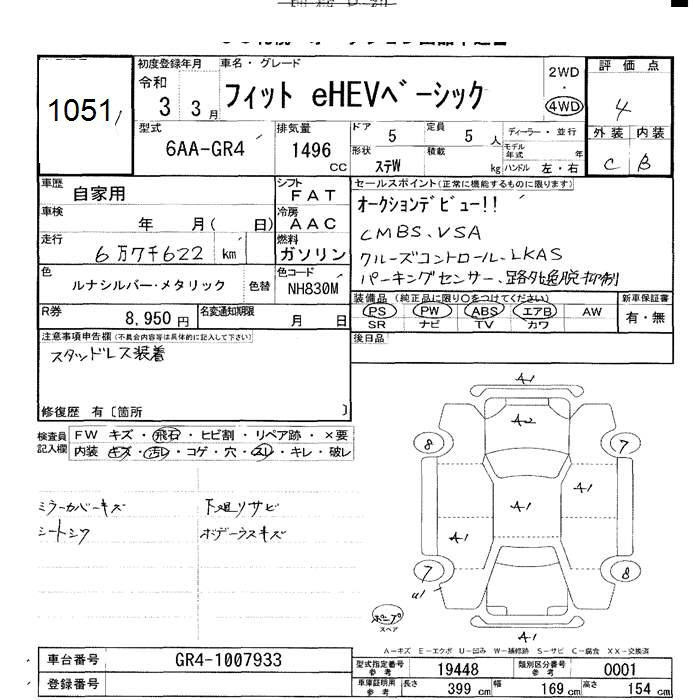 1051
初度登録年月
令和
3 3月
車名・グレード
フィット eHEVベーシック
2WD
・
4WD
評価点
4
外装 内装
C B
型式
6AA-GR4
排気量
1496
CC
ドア
5
定員
5 人
形状
ステW
積載
kg
ディーラー・並行
モデル年式 年
ハンドル 左・右
車歴
自家用
シフト
FAT
車検
年 月( 日)
冷房
AAC
走行
6万7千622 km
燃料
ガソリン
色
ルナシルバー・メタリック
色替
色コード
NH830M
R券
8,950 円
名変通知期限
月 日
セールスポイント(正常に機能するものに限ります)
オークションデビュー!!
CMBS、VSA
クルーズコントロール、LKAS
パーキングセンサー、路外逸脱抑制
装備品(純正品に限り○をつけてください)
PS PW ABS エアB AW
SR ナビ TV カワ
新車保証書
有・無
後日品
注意事項申告欄(不具合内容等は具体的に記入して下さい)
スタッドレス装着
修復歴 有〔箇所 〕
検査員記入欄
FW キズ・飛石・ヒビ割・リペア跡・×要
内装・キズ・汚レ・コゲ・穴・スレ・キレ・破レ
ミラーカバーキズ
シートシワ
下廻りサビ
ボデーウスキズ
A1
A2
8
7
A1
A1
A1
7
8
u1
A1
スペア
A-キズ E-エクボ U-凹み W-補修跡 S-サビ C-腐食 XX-交換済
車台番号
GR4-1007933
登録番号
型式指定番号参考
19448
類別区分番号参考
0001
車庫証明用参考
長さ 399 cm
幅 169 cm
高さ 154 cm